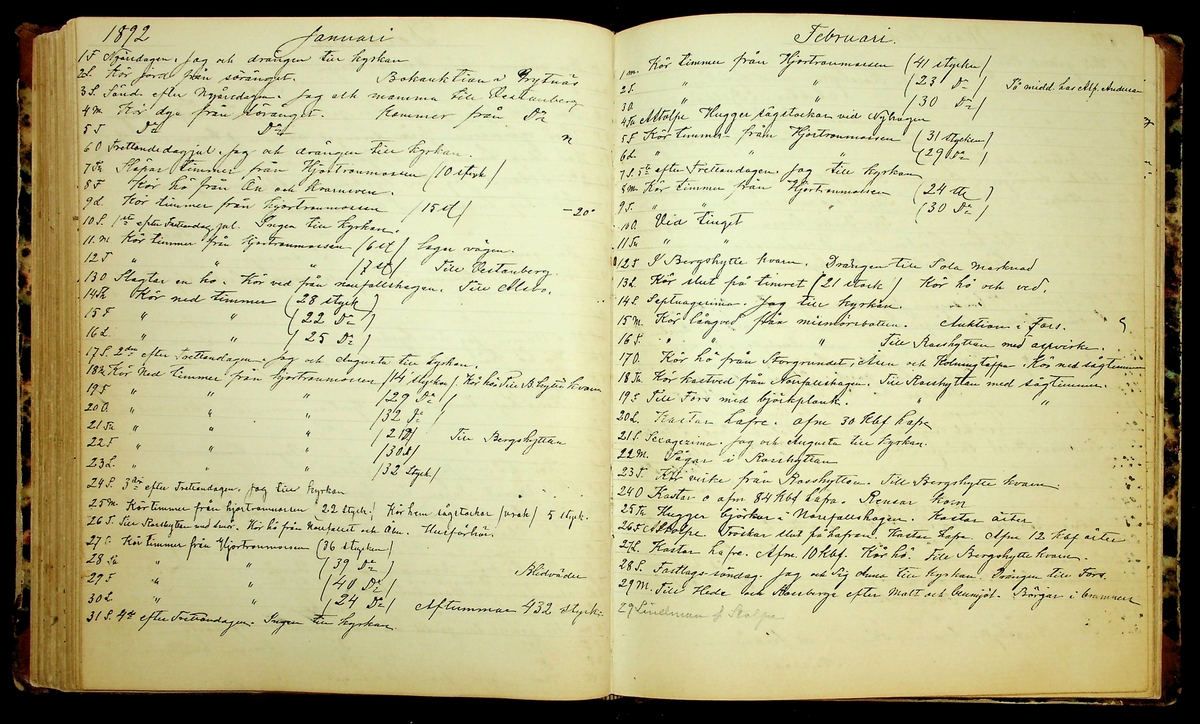 1892 Januari
1 F Nyårsdagen. Jag och drängen till kyrkan
2 L. Kör jord från söränget. Bokauktion i Grytnäs
3 S. Sönd. efter Nyårsdagen. Jag och mamma till Vestanberg
4 M. Kör dya från söränget. Kommer från Do
5 T Do Do
6 O Trettondedagjul. Jag och drängen till kyrkan.
7 To Släpar timmer från Hjortronmossen (10 styck)
8 F Kör hö från Ön och kvarneren.
9 L Kör timmer från hjortronmossen (15 st) -20°
10 S. 1sta efter Trettondag jul. Ingen till kyrkan.
11 M. Kör timmer från hjortronmossen (6 st) lagar vägen.
12 T " " " (7 st) Till Vestanberg.
13 O Slagtar en ko. Kör ved från norfallshagen. Till Alsbo.
14 To Kör ned timmer (28 styck)
15 F " " (22 Do)
16 L. " " (25 Do)
17 S. 2dra efter Trettondagen. Jag och Augusta till kyrkan.
18 M. Kör Ned timmer från hjortronmossen (14 stycken) Kör hö Till B.hytte kvarn
19 T " " " (29 Do)
20 O. " " " (32 Do)
21 To " " " (2 Till Bergshyttan
22 F " " " (30 st)
23 L. " " " (32 styck)
24 S. 3dje efter Trettondagen. Jag till kyrkan
25 M. Kör timmer från hjortronmossen (22 styck) Kör hem sågstockar (vrak) 5 styck.
26 T. Till Rosshyttan med smör. Kör hö från norfallet och Ön. Husförhör.
27 O Kör timmer från Hjortronmossen (36 stycken)
28 To " " (39 Do)
29 F " " (40 Do) Blidväder
30 L " " (24 Do) Aftummar 432 styck
31 S. 4de efter Trettondagen. Ingen till kyrkan
Februari.
1 M. Kör timmer från Hjortronmossen (41 stycken)
2 T. " " (23 Do) På midd. hos Alf. Anderson
3 O. " " (30 Do)
4 To Adolfe Hugger sågstockar ved Nyhagen
5 F Kör timmer från Hjortronmossen (31 stycken)
6 L. " " " (29 Do)
7 S. 5te efter Trettondagen. Jag till kyrkan
8 M. Kör timmer från Hjortronmossen (24 st)
9 T. " " " (30 Do)
10 O. Vid tinget
11 To " "
12 F I Bergshytte kvarn. Drängen till Sala marknad
13 L. Kör slut på timret (21 stock) Kör hö och ved.
14 S. Septuagesima. Jag till kyrkan.
15 M. Kör långved från Auktion i Fors.
16 T. " " " " Till Rosshyttan med aspvirke.
17 O. Kör hö från Storgrundet, Åsen och Kolningtäppa. Kör ned sågtimmer
18 To Kör kastved från Norfallshagen. Till Rosshyttan med sågtimmer.
19 F Till Fors med björkplank. " "
20 L. Kastar hafre. afm 30 Kbf hafre
21 S. Sexagesima. Jag och Augusta till kyrkan.
22 M. Sågar i Rosshyttan
23 T. Kör virke från Rosshyttan. Till Bergshytte kvarn.
24 O Kastar o afm 84 Kbf hafre. Rensar korn
25 To Hugger björkar i Norfallshagen. Kastar ärter
26 F Adolfe Tröskar slut på hafren. Kastar hafre. Afm 12 kbf ärter
27 L. Kastar hafre. Afm 10 kbf. Kör hö. Till Bergshytte kvarn
28 S. Fastlags-söndag. Jag och Sig till kyrkan. Drängen till Fors.
29 M. Till Hede och Rossberga efter Malt och benmjöl.
29 Lindman